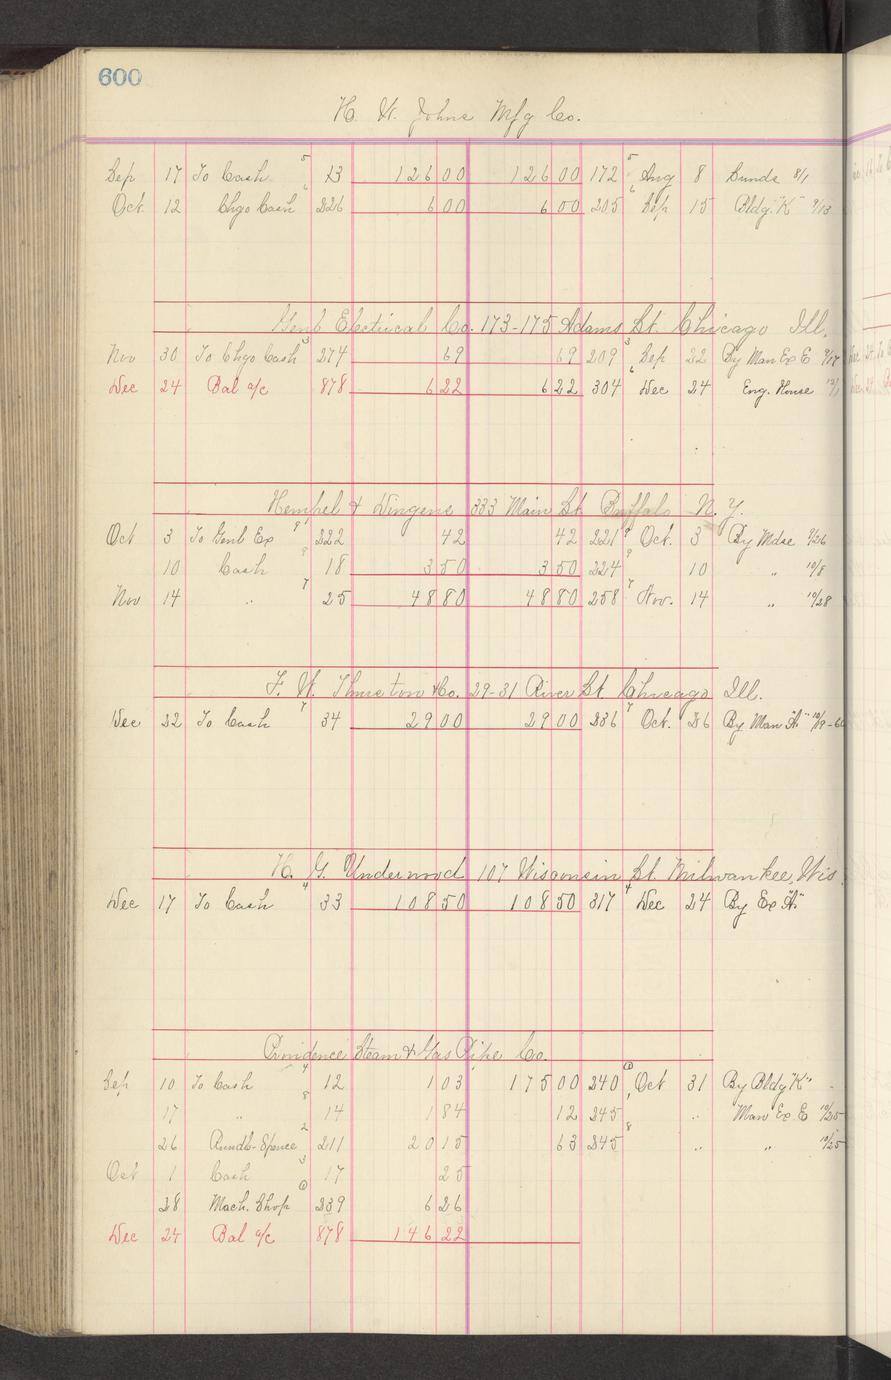 600
H. W. Johns Mfg Co.
Sep 17 To Cash 5 13 126 00 126 00 172 5 Aug 8 Sunds 8/1
Oct. 12 Chgo Cash 6 226 6 00 6 00 205 6 Sep 15 Bldg "K" 9/13
Genl Electrical Co. 173-175 Adams St. Chicago Ill.
Nov 30 To Chgo Cash 3 274 69 69 209 3 Sep 22 By Man Ex E 9/17
Dec 24 Bal a/c 878 6 22 6 22 304 6 Dec 24 Eng. House 12/1
Hempel & Dingens 333 Main St. Buffalo N. Y.
Oct 3 To Genl Ex 9 222 42 42 221 9 Oct. 3 By Mdse 9/26
10 Cash 9 18 3 50 3 50 224 9 10 " 10/8
Nov 14 " 7 25 48 80 48 80 258 7 Nov. 14 " 10/28
F. W. Thurston & Co. 29-31 River St. Chicago Ill.
Dec 22 To Cash 7 34 29 00 29 00 236 7 Oct. 26 By Man "A" 10/19-60
H. G. Underwood 107 Wisconsin St. Milwaukee, Wis.
Dec 17 To Cash 4 33 108 50 108 50 317 4 Dec 24 By Ex "A"
Providence Steam & Gas Pipe Co.
Sep 10 To Cash 4 12 1 03 175 00 240 1 Oct 31 By Bldg "K"
17 " 8 14 1 84 12 245 1 " Man Ex. E 10/25
26 Rundle-Spence 2 211 20 15 63 245 8 " " 10/25
Oct 1 Cash 3 17 25
28 Mach. Shop 1 239 6 26
Dec 24 Bal a/c 878 146 22